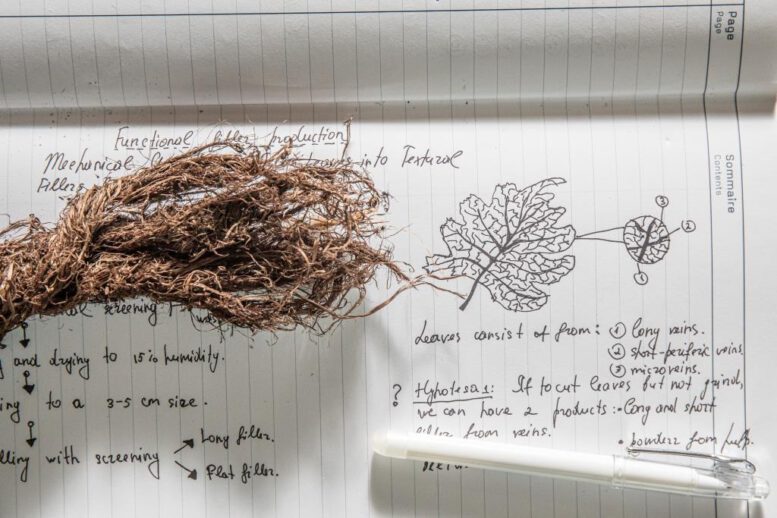 Page
Page
Sommaire
Contents
Functional filler production
Mechanical leaves into Textural
Fillers
screening
and drying to 15% humidity.
ing to a 3-5 cm size.
lling with screening
Long filler.
Flat filler.
③
②
①
Leaves consist of from: ① long veins.
② short-periferic veins.
③ microveins.
? Hypotesa 1: If to cut leaves but not grind,
we can have 2 products: • Long and short
filler from veins.
• powder from pulp.